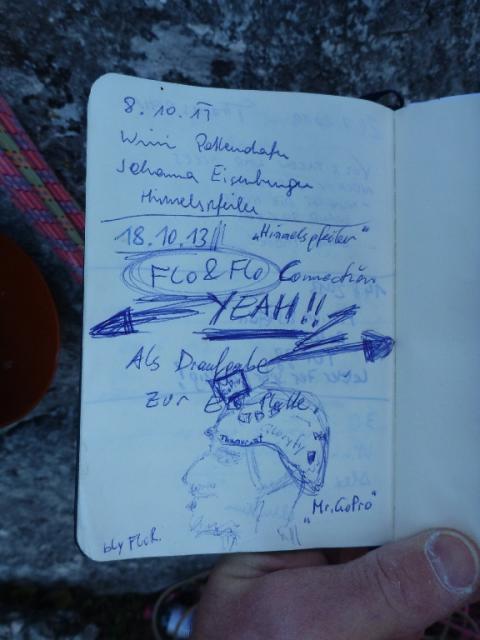 8.10.11
Johanna Eisenberger
Himmelspfeiler
18.10.13 "Himmelspfeiler"
FLO & FLO Connection
YEAH!!
Als Draufgabe
Zur Platte
"Mr. GoPro"
by FLOR.